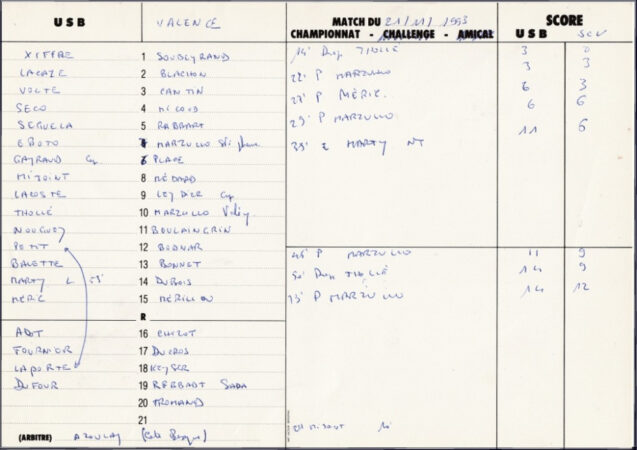 USB VALENCE MATCH DU 21/11/1993 SCORE
CHAMPIONNAT - CHALLENGE - AMICAL USB SCV
XIFFRE 1 SOUBEYRAND 14' Drop THOLLÉ 3 0
LACAZE 2 BLACHON 22' P MARZULLO 3 3
VOLTE 3 CANTIN 27' P MÉRIC 6 3
SECO 4 NICOUD 29' P MARZULLO 6 6
SEGUELA 5 RABBART 39' E MARTY NT 11 6
EBOTO 7 MARZULLO Stéphane
GAYRAUD Cap 6 PLACE
MIJOINT 8 MÉDARD
LACOSTE 9 LEYDIER Cap
THOLLÉ 10 MARZULLO
NOUGUEY 11 BOULAINGRIN
PETIT 12 BODNAR 46' P MARZULLO 11 9
BALETTE 13 BONNET 50' Drop THOLLÉ 14 9
MARTY L 14 DUBOIS 73' P MARZULLO 14 12
MÉRIC 15 MÉRILLON
R
ADOT 16 CHIZOT
FOURNIER 17 DUCROS
LAPORTE 18 KEYSER
DUFOUR 19 REBBADT SADA
20 TROMAND
21
(ARBITRE) AZOULAY (Côte Basque)